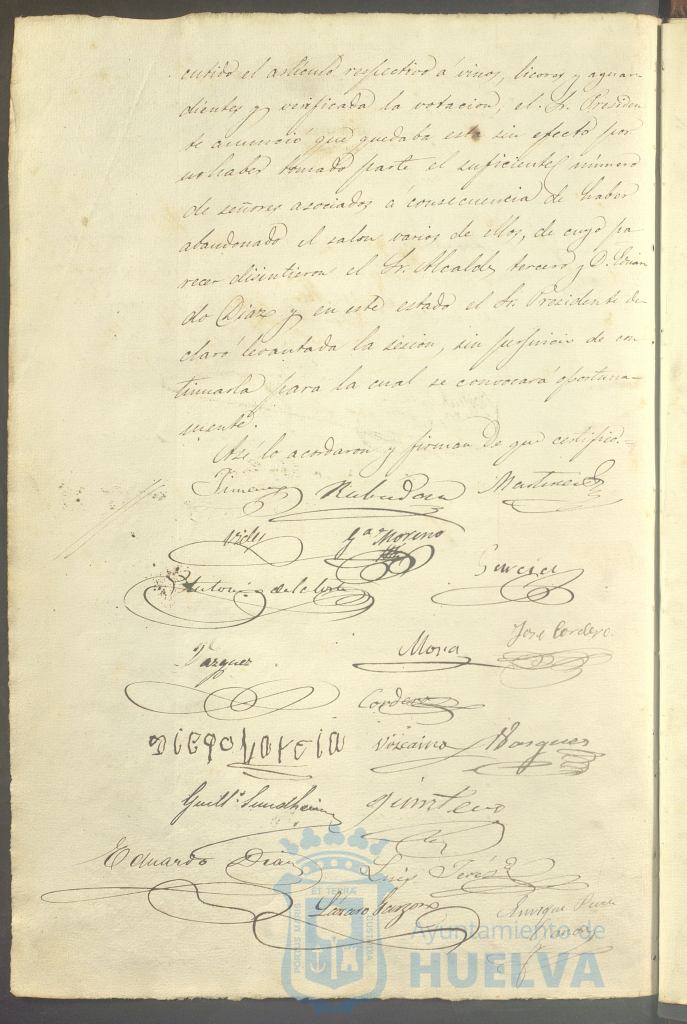 cutido el artículo respectivo á vinos, licores y aguar
dientes y verificada la votacion, el Sr. Presiden
te anunció que quedaba esta sin efecto por
no haber tomado parte el suficiente número
de señores asociados á consecuencia de haber
abandonado el salon varios de ellos, de cuyo pa
recer disintieron el Sr. Alcalde tercero y D. Eduar
do Diaz y en este estado el Sr. Presidente de
claró levantada la sesion, sin perjuicio de con
tinuarla para la cual se convocará oportuna
mente.
Asi lo acordaron y firman de que certifico.=
Jimenez Rabadan Martinez
Vides Ga Moreno
Garcia
Antonio de la Corte
José Cordero
Vazquez Mora
Cordero
Diego Garcia Vizcaino Vazquez
Guillo Sundheim Quintero
Eduardo Diaz Luis
Lázaro Garzon Enrique
ET TERRÆ
PORTUS MARIS
CUSTODIA
Ayuntamiento de
HUELVA